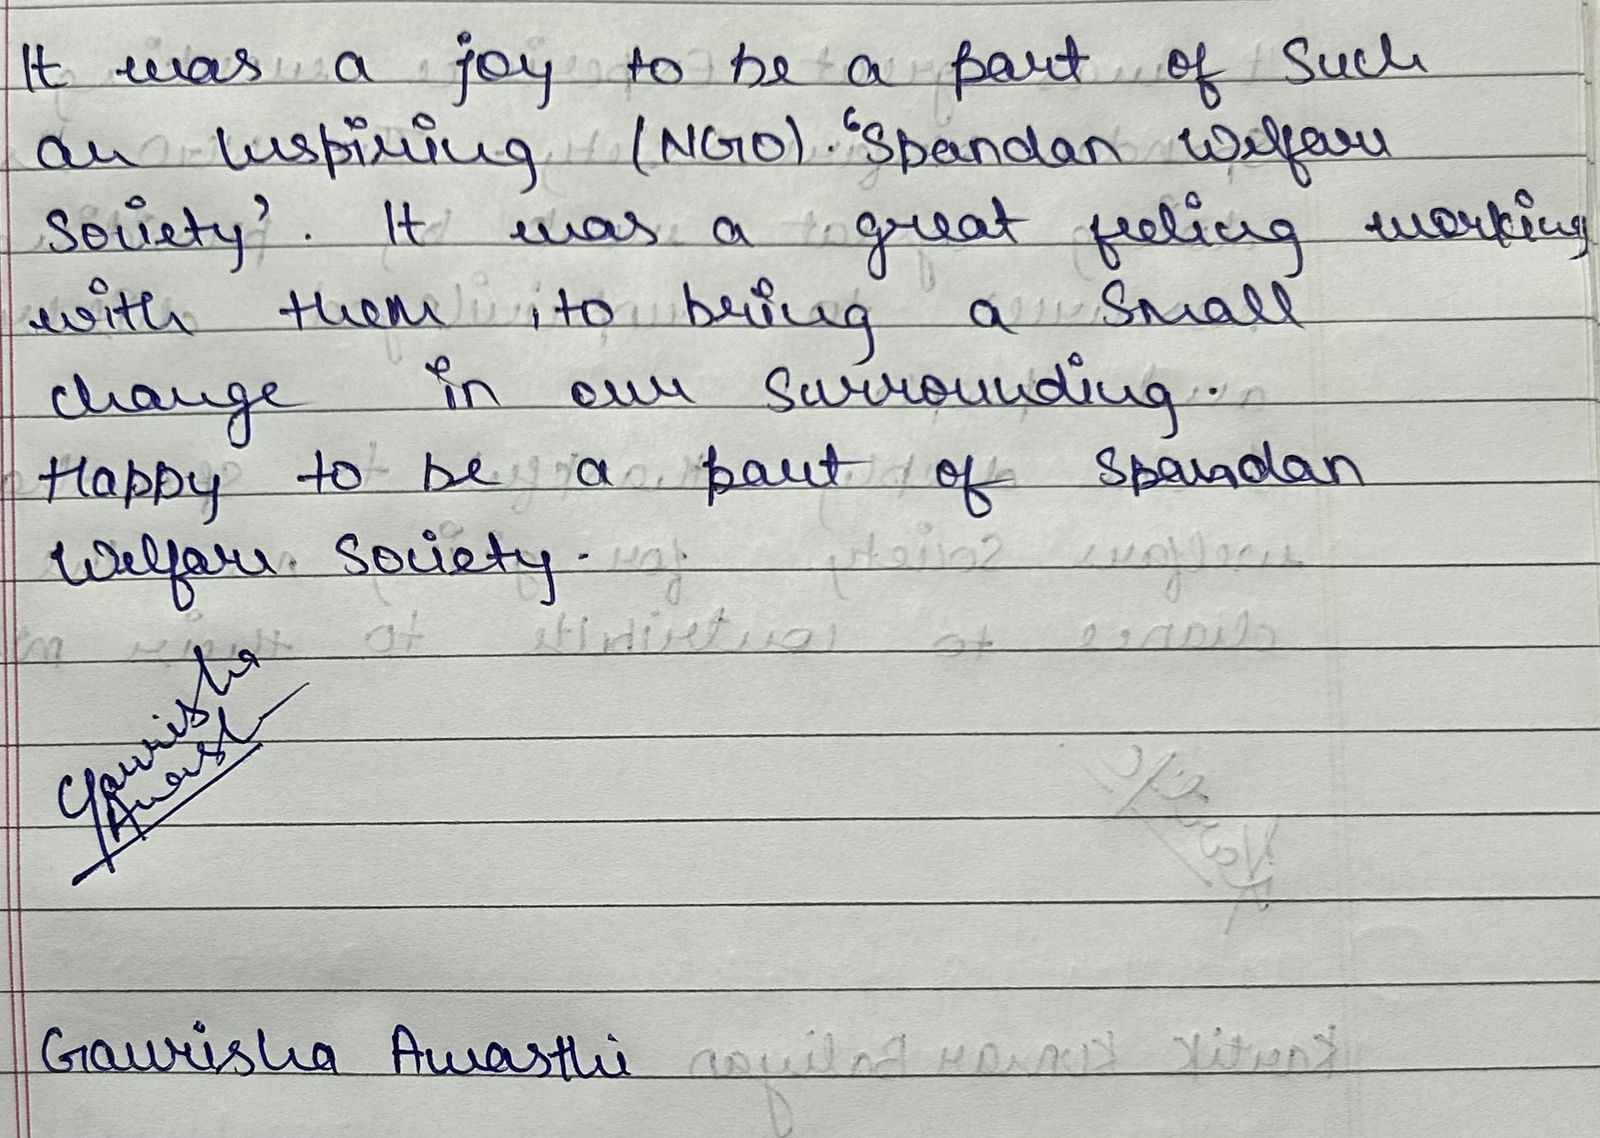 It was a joy to be a part of such
an Inspiring (NGO). 'Spandan Welfare
Society'. It was a great feeling working
with them, to bring a small
change in our surrounding.
Happy to be a part of Spandan
Welfare Society.
Gaurisha
Awasthi
Gaurisha Awasthi